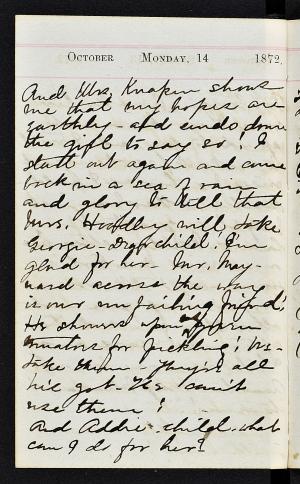 October Monday, 14 1872.
And Mrs. Knapen shows
me that my hopes are
earthly - and sends down
the gift to say so! I
start out again and come
back in a sea of rain
and glory to tell that
Mrs. Hoadley will take
Georgie - Dear child. I'm
glad for her. Mr. May-
nard across the way
is our unfailing friend!
He showers upon us green
tomatoes for pickling! Mr.
take them - They're all
he's got - Yes I can't
use them!
And Addie - child - what
can I do for her?